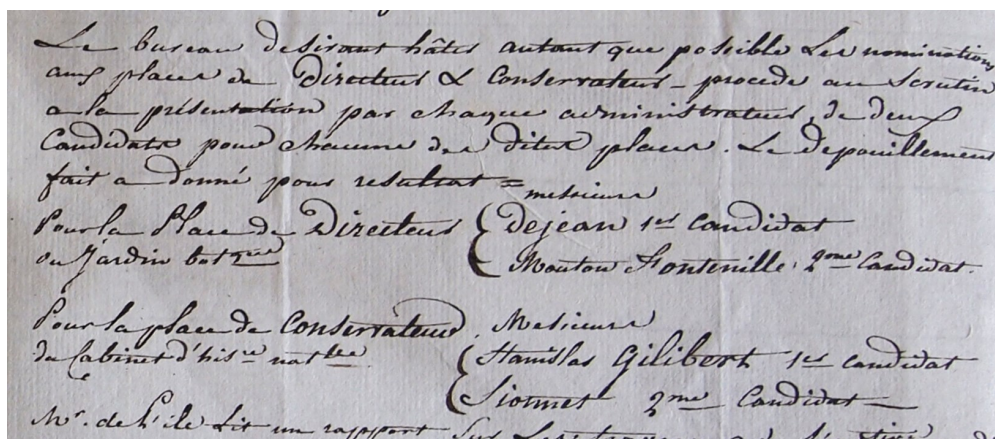 Le bureau desirant hâter autant que possible les nominations
aux places de Directeur & Conservateur procede au scrutin
a la présentation par chaque administrateur, de deux
Candidats pour chacune des dites places. Le depouillement
fait a donné pour resultat = messieurs
Pour la Place de Directeur { Dejean 1er candidat
du Jardin botque { Mouton Fontenille 2me Candidat.
Pour la place de Conservateur, Messieurs
du Cabinet d'hisre natlle { Stanislas Gilibert 1er candidat
{ Sionnet 2me Candidat
Mr. de L'ile Lit un rapport sur